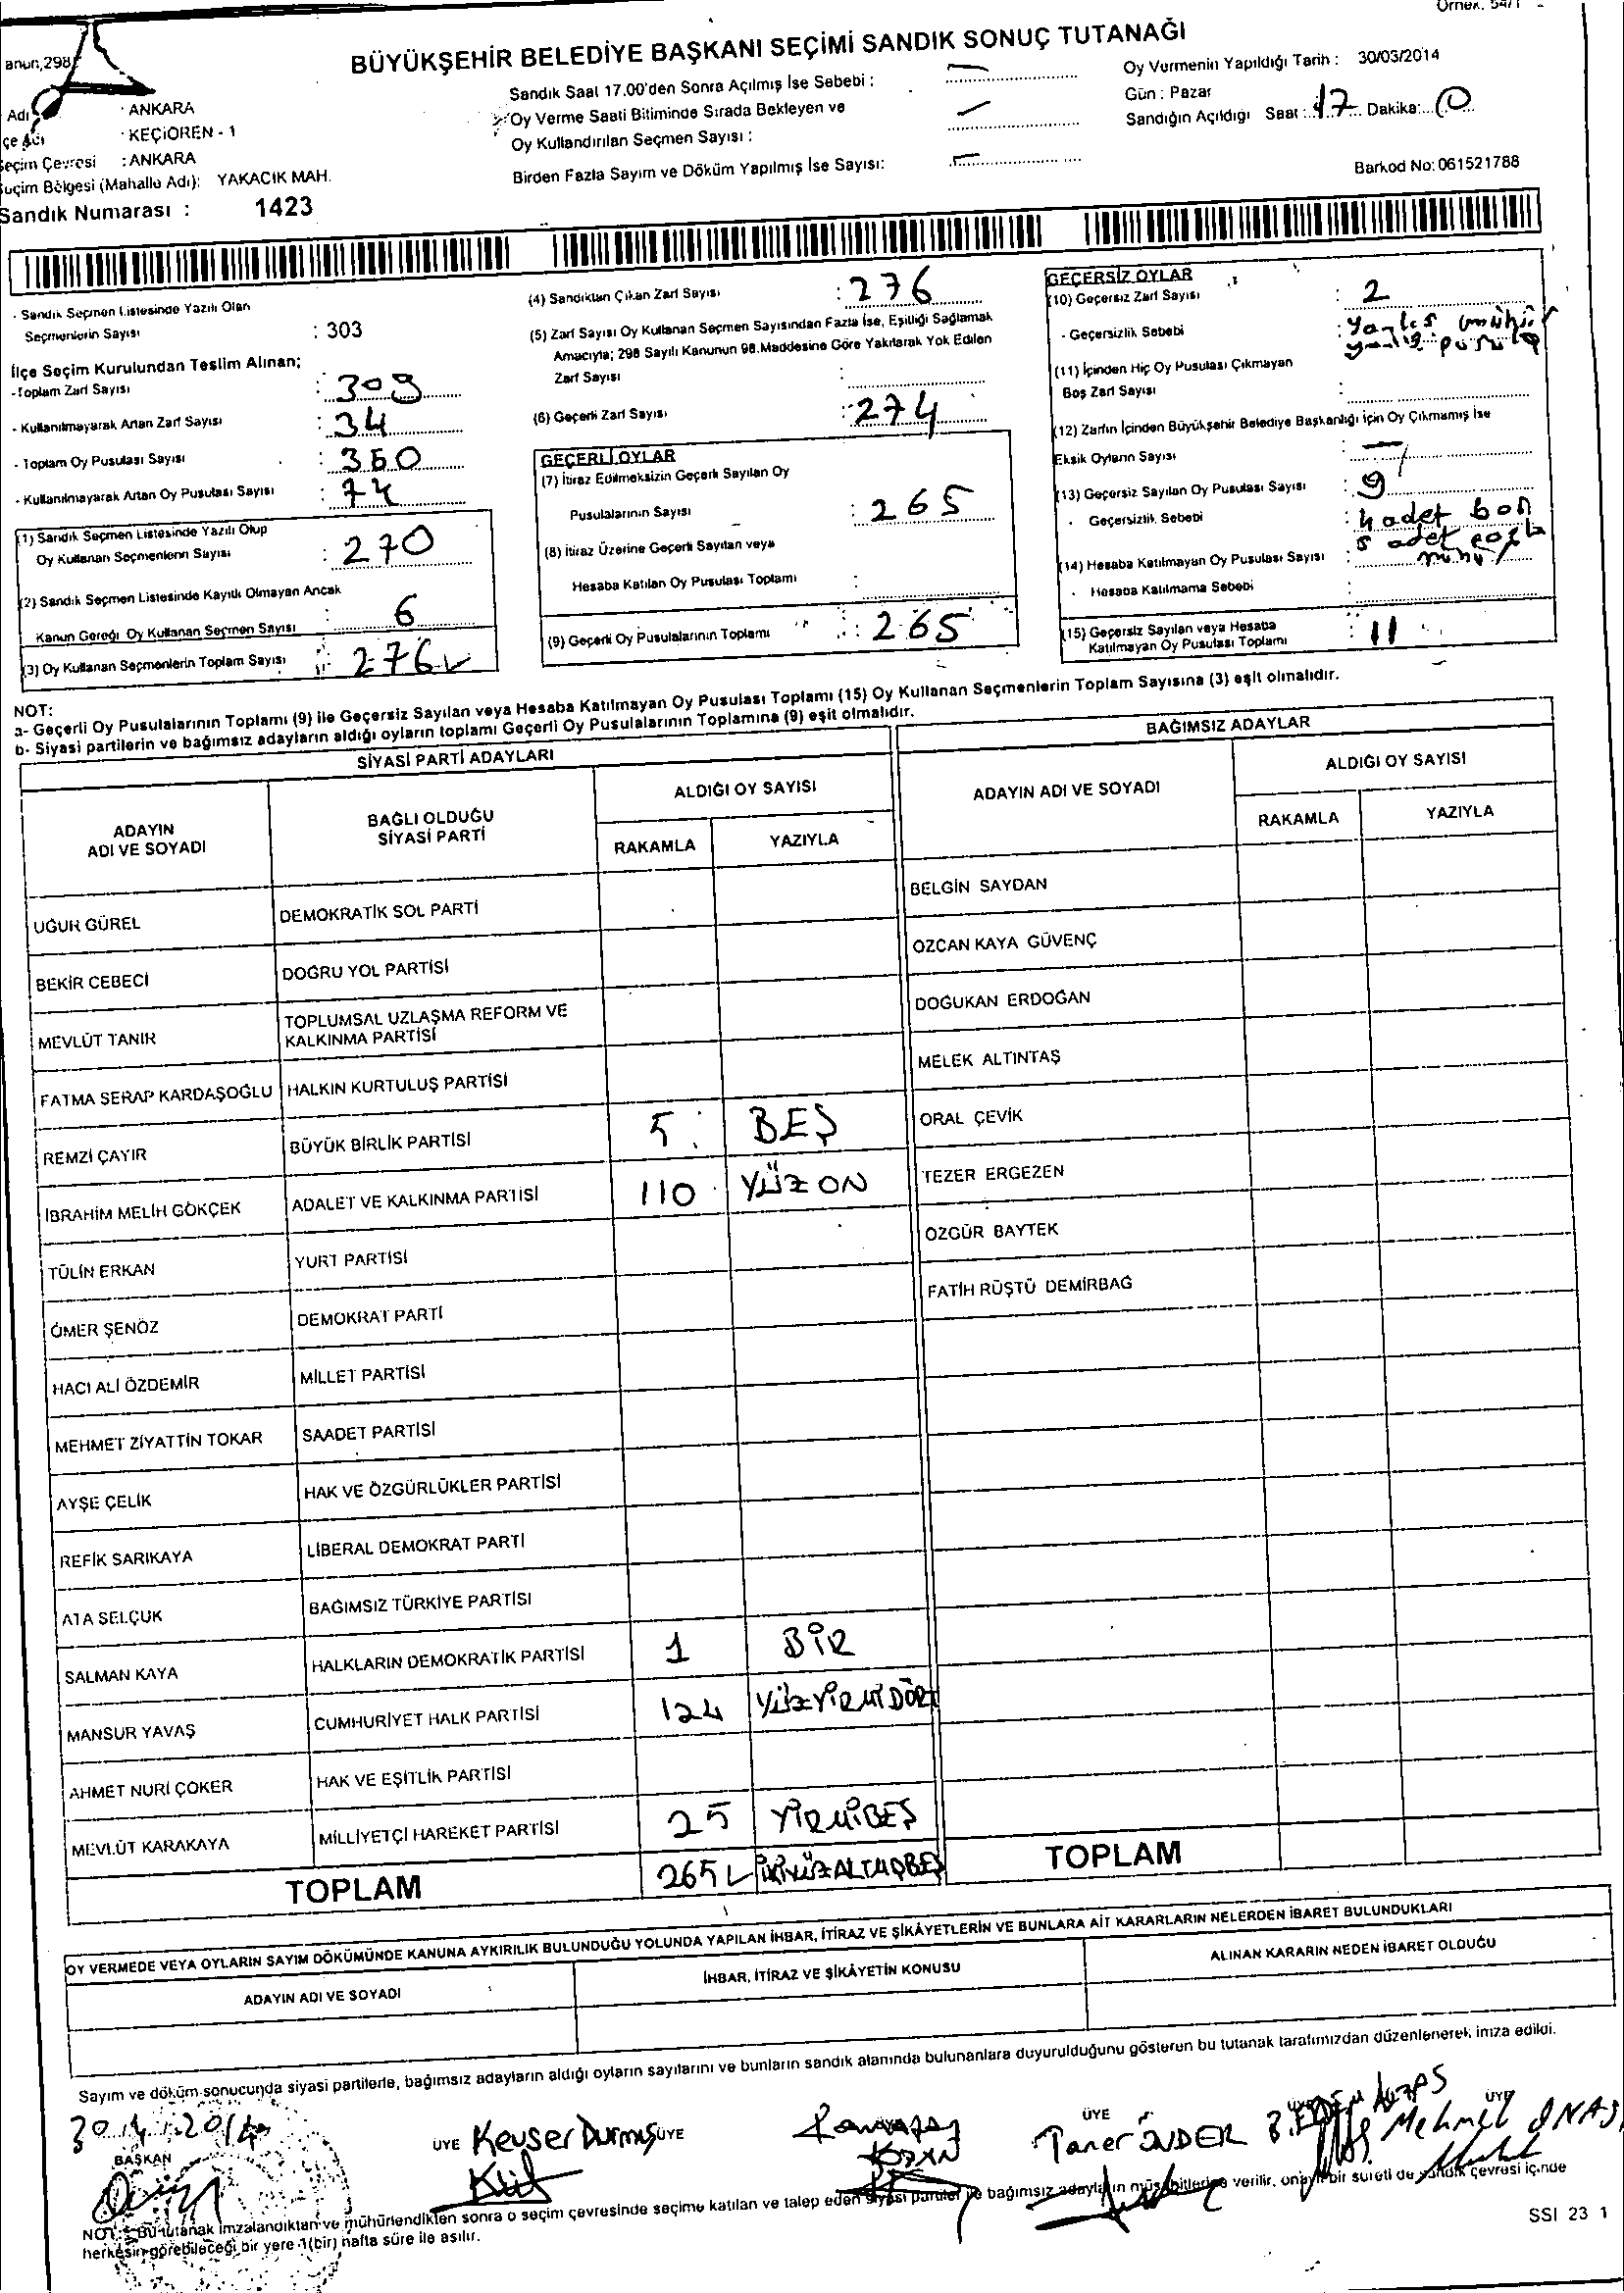 Örnek: 54/1
anun,298
BÜYÜKŞEHİR BELEDİYE BAŞKANI SEÇİMİ SANDIK SONUÇ TUTANAĞI
Adı : ANKARA
çe Adı : KEÇİÖREN - 1
Seçim Çevresi : ANKARA
Seçim Bölgesi (Mahalle Adı): YAKACIK MAH.
Sandık Numarası : 1423
Sandık Saat 17.00'den Sonra Açılmış İse Sebebi :
Oy Verme Saati Bitiminde Sırada Bekleyen ve
Oy Kullandırılan Seçmen Sayısı :
Birden Fazla Sayım ve Döküm Yapılmış İse Sayısı:
Oy Vermenin Yapıldığı Tarih : 30/03/2014
Gün : Pazar
Sandığın Açıldığı Saat : 17 Dakika: 0
Barkod No: 061521788
- Sandık Seçmen Listesinde Yazılı Olan
Seçmenlerin Sayısı : 303
İlçe Seçim Kurulundan Teslim Alınan;
-Toplam Zarf Sayısı : 309
- Kullanılmayarak Artan Zarf Sayısı : 34
- Toplam Oy Pusulası Sayısı : 350
- Kullanılmayarak Artan Oy Pusulası Sayısı : 74
(1) Sandık Seçmen Listesinde Yazılı Olup
Oy Kullanan Seçmenlerin Sayısı : 270
(2) Sandık Seçmen Listesinde Kayıtlı Olmayan Ancak
Kanun Gereği Oy Kullanan Seçmen Sayısı : 6
(3) Oy Kullanan Seçmenlerin Toplam Sayısı : 276
(4) Sandıktan Çıkan Zarf Sayısı : 276
(5) Zarf Sayısı Oy Kullanan Seçmen Sayısından Fazla İse, Eşitliği Sağlamak
Amacıyla; 298 Sayılı Kanunun 98.Maddesine Göre Yakılarak Yok Edilen
Zarf Sayısı :
(6) Geçerli Zarf Sayısı : 274
GEÇERLİ OYLAR
(7) İtiraz Edilmeksizin Geçerli Sayılan Oy
Pusulalarının Sayısı : 265
(8) İtiraz Üzerine Geçerli Sayılan veya
Hesaba Katılan Oy Pusulası Toplamı :
(9) Geçerli Oy Pusulalarının Toplamı : 265
GEÇERSİZ OYLAR
(10) Geçersiz Zarf Sayısı : 2
- Geçersizlik Sebebi : Yanlış mühür
yanlış pusula
(11) İçinden Hiç Oy Pusulası Çıkmayan
Boş Zarf Sayısı :
(12) Zarfın İçinden Büyükşehir Belediye Başkanlığı İçin Oy Çıkmamış İse
Eksik Oyların Sayısı :
(13) Geçersiz Sayılan Oy Pusulası Sayısı : 9
- Geçersizlik Sebebi : 4 adet boş
5 adet fazla
(14) Hesaba Katılmayan Oy Pusulası Sayısı : mühür
- Hesaba Katılmama Sebebi :
(15) Geçersiz Sayılan veya Hesaba
Katılmayan Oy Pusulası Toplamı : 11
NOT:
a- Geçerli Oy Pusulalarının Toplamı (9) ile Geçersiz Sayılan veya Hesaba Katılmayan Oy Pusulası Toplamı (15) Oy Kullanan Seçmenlerin Toplam Sayısına (3) eşit olmalıdır.
b- Siyasi partilerin ve bağımsız adayların aldığı oyların toplamı Geçerli Oy Pusulalarının Toplamına (9) eşit olmalıdır.
SİYASİ PARTİ ADAYLARI
ADAYIN
ADI VE SOYADI
BAĞLI OLDUĞU
SİYASİ PARTİ
ALDIĞI OY SAYISI
RAKAMLA YAZIYLA
UĞUR GÜREL DEMOKRATİK SOL PARTİ
BEKİR CEBECİ DOĞRU YOL PARTİSİ
MEVLÜT TANIR TOPLUMSAL UZLAŞMA REFORM VE
KALKINMA PARTİSİ
FATMA SERAP KARDAŞOĞLU HALKIN KURTULUŞ PARTİSİ
REMZİ ÇAYIR BÜYÜK BİRLİK PARTİSİ 5 BEŞ
İBRAHİM MELİH GÖKÇEK ADALET VE KALKINMA PARTİSİ 110 YÜZ ON
TÜLİN ERKAN YURT PARTİSİ
ÖMER ŞENÖZ DEMOKRAT PARTİ
HACI ALİ ÖZDEMİR MİLLET PARTİSİ
MEHMET ZİYATTİN TOKAR SAADET PARTİSİ
AYŞE ÇELİK HAK VE ÖZGÜRLÜKLER PARTİSİ
REFİK SARIKAYA LİBERAL DEMOKRAT PARTİ
ATA SELÇUK BAĞIMSIZ TÜRKİYE PARTİSİ
SALMAN KAYA HALKLARIN DEMOKRATİK PARTİSİ 1 BİR
MANSUR YAVAŞ CUMHURİYET HALK PARTİSİ 124 YÜZYİRMİDÖRT
AHMET NURİ ÇOKER HAK VE EŞİTLİK PARTİSİ
MEVLÜT KARAKAYA MİLLİYETÇİ HAREKET PARTİSİ 25 YİRMİBEŞ
TOPLAM 265 İKİYÜZALTMIŞBEŞ
BAĞIMSIZ ADAYLAR
ADAYIN ADI VE SOYADI
ALDIĞI OY SAYISI
RAKAMLA YAZIYLA
BELGİN SAYDAN
ÖZCAN KAYA GÜVENÇ
DOĞUKAN ERDOĞAN
MELEK ALTINTAŞ
ORAL ÇEVİK
TEZER ERGEZEN
ÖZGÜR BAYTEK
FATİH RÜŞTÜ DEMİRBAĞ
TOPLAM
OY VERMEDE VEYA OYLARIN SAYIM DÖKÜMÜNDE KANUNA AYKIRILIK BULUNDUĞU YOLUNDA YAPILAN İHBAR, İTİRAZ VE ŞİKÂYETLERİN VE BUNLARA AİT KARARLARIN NELERDEN İBARET BULUNDUKLARI
ADAYIN ADI VE SOYADI
İHBAR, İTİRAZ VE ŞİKÂYETİN KONUSU
ALINAN KARARIN NEDEN İBARET OLDUĞU
Sayım ve döküm sonucunda siyasi partilerle, bağımsız adayların aldığı oyların sayılarını ve bunların sandık alanında bulunanlara duyurulduğunu gösteren bu tutanak tarafımızdan düzenlenerek imza edildi.
BAŞKAN
ÜYE Kevser Durmuş
ÜYE Ramazan
ÜYE Taner ÖNDER
ÜYE Mehmet
NOT : Bu tutanak imzalandıktan ve mühürlendikten sonra o seçim çevresinde seçime katılan ve talep eden siyasi partiler ile bağımsız adayların müşahitlerine verilir, onaylı bir sureti de sandık çevresi içinde
herkesin görebileceği bir yere 1(bir) hafta süre ile asılır.
SSI 23 1